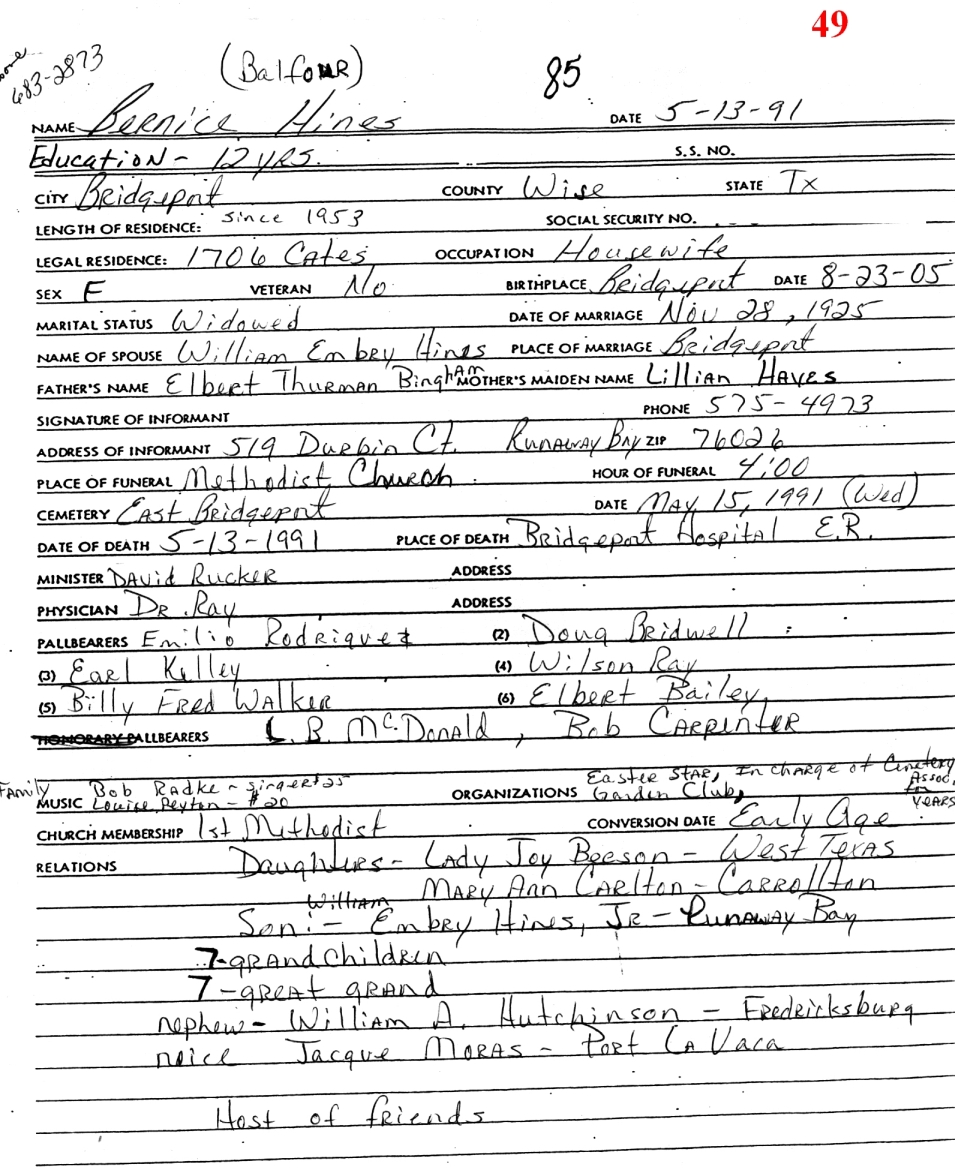 49
683-2873
(Balfour) 85
NAME Bernice Hines DATE 5-13-91
Education - 12 yrs. S.S. NO.
CITY Bridgeport COUNTY Wise STATE Tx
LENGTH OF RESIDENCE: since 1953 SOCIAL SECURITY NO.
LEGAL RESIDENCE: 1706 Cates OCCUPATION Housewife
SEX F VETERAN No BIRTHPLACE Bridgeport DATE 8-23-05
MARITAL STATUS Widowed DATE OF MARRIAGE Nov 28, 1925
NAME OF SPOUSE William Embry Hines PLACE OF MARRIAGE Bridgeport
FATHER'S NAME Elbert Thurman Bingham MOTHER'S MAIDEN NAME Lillian Hayes
SIGNATURE OF INFORMANT PHONE 575-4973
ADDRESS OF INFORMANT 519 Durbin Ct. Runaway Bay ZIP 76026
PLACE OF FUNERAL Methodist Church HOUR OF FUNERAL 4:00
CEMETERY East Bridgeport DATE May 15, 1991 (Wed)
DATE OF DEATH 5-13-1991 PLACE OF DEATH Bridgeport Hospital E.R.
MINISTER David Rucker ADDRESS
PHYSICIAN Dr. Ray ADDRESS
PALLBEARERS Emilio Rodriquez (2) Doug Bridwell
(3) Earl Kelley (4) Wilson Ray
(5) Billy Fred Walker (6) Elbert Bailey,
HONORARY PALLBEARERS L.B. McDonald, Bob Carpinter
Family Bob Radke - singer #25 Easter Star, In charge of Cemetery Assoc. for years
MUSIC Louise Peyton - #20 ORGANIZATIONS Garden Club,
CHURCH MEMBERSHIP 1st Methodist CONVERSION DATE Early Age
RELATIONS Daughters - Lady Joy Beeson - West Texas
Mary Ann Carlton - Carrollton
William
Son: - Embry Hines, Jr - Runaway Bay
7-grandchildren
7-great grand
nephew - William A. Hutchinson - Fredricksburg
neice Jacque Moras - Port La Vaca
Host of friends